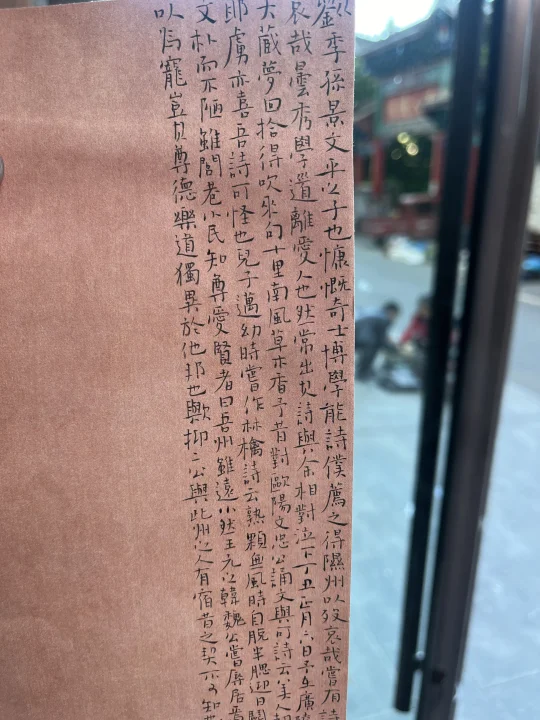 劉季孫景文平之子也慷慨奇士博學能詩僕薦之得隰州以歿哀哉嘗有詩
哀哉曇秀學道離愛人也然常出其詩與余相對泣下丁丑正月六日予在廣陵
大藏夢回拾得吹來句十里南風草木香予昔對歐陽文忠公誦文與可詩云美人却
耶虜亦喜吾詩可怪也兒子邁幼時嘗作林檎詩云熟顆無風時自脫半腮迎日鬭
文朴而不陋雖閭巷小民知尊愛賢者曰吾州雖遠小然王元之韓魏公嘗辱居焉
以為寵豈其尊德樂道獨異於他邦也歟抑二公與此州之人有宿昔之契不可知也